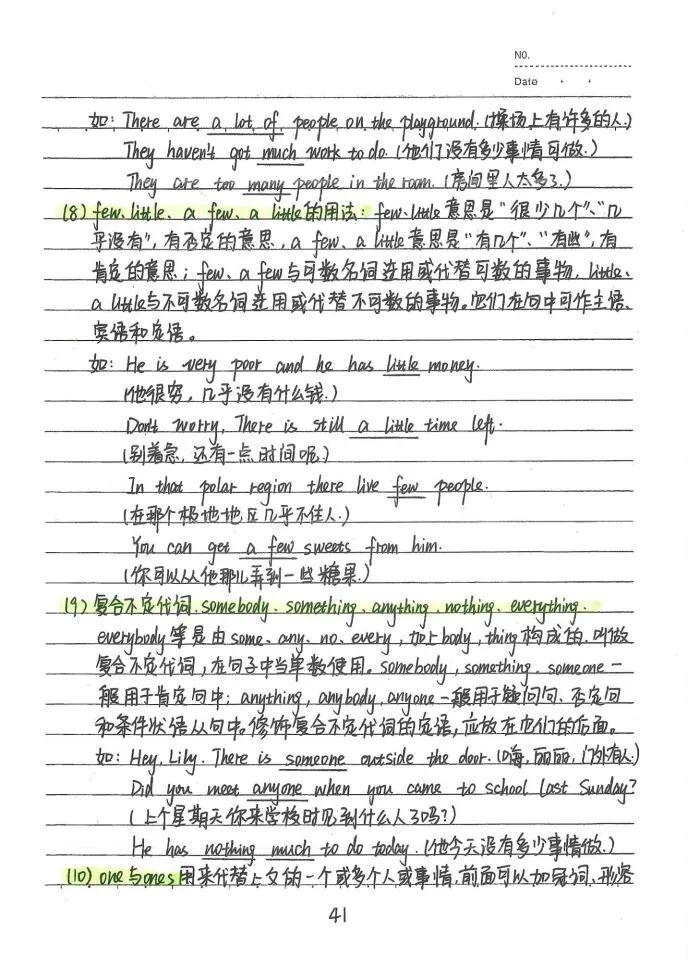 NO.
Date
如: There are a lot of people on the playground. (操场上有许多的人.)
They haven't got much work to do. (他们没有多少事情可做.)
They are too many people in the room. (房间里人太多了.)
(8) few、little、a few、a little的用法: few、little意思是“很少几个”、“几
乎没有”, 有否定的意思, a few、a little意思是“有几个”、“有些”, 有
肯定的意思; few、a few与可数名词连用或代替可数的事物, little、
a little与不可数名词连用或代替不可数的事物。它们在句中可作主语、
宾语和定语。
如: He is very poor and he has little money.
(他很穷, 几乎没有什么钱.)
Don't worry, There is still a little time left.
(别着急, 还有一点时间呢.)
In that polar region there live few people.
(在那个极地地区几乎不住人.)
You can get a few sweets from him.
(你可以从他那儿弄到一些糖果.)
(9) 复合不定代词、somebody、something、anything、nothing、everything、
everybody等是由some、any、no、every, 加上body, thing构成的, 叫做
复合不定代词, 在句子中当单数使用。somebody, something, someone一
般用于肯定句中; anything, anybody, anyone一般用于疑问句、否定句
和条件状语从句中。修饰复合不定代词的定语, 应放在它们的后面。
如: Hey, Lily. There is someone outside the door. (嗨, 丽丽, 门外有人.)
Did you meet anyone when you came to school last Sunday?
(上个星期天你来学校时见到什么人了吗?)
He has nothing much to do today. (他今天没有多少事情做.)
(10) one与ones用来代替上文的一个或多个人或事情, 前面可以加冠词、形容
41